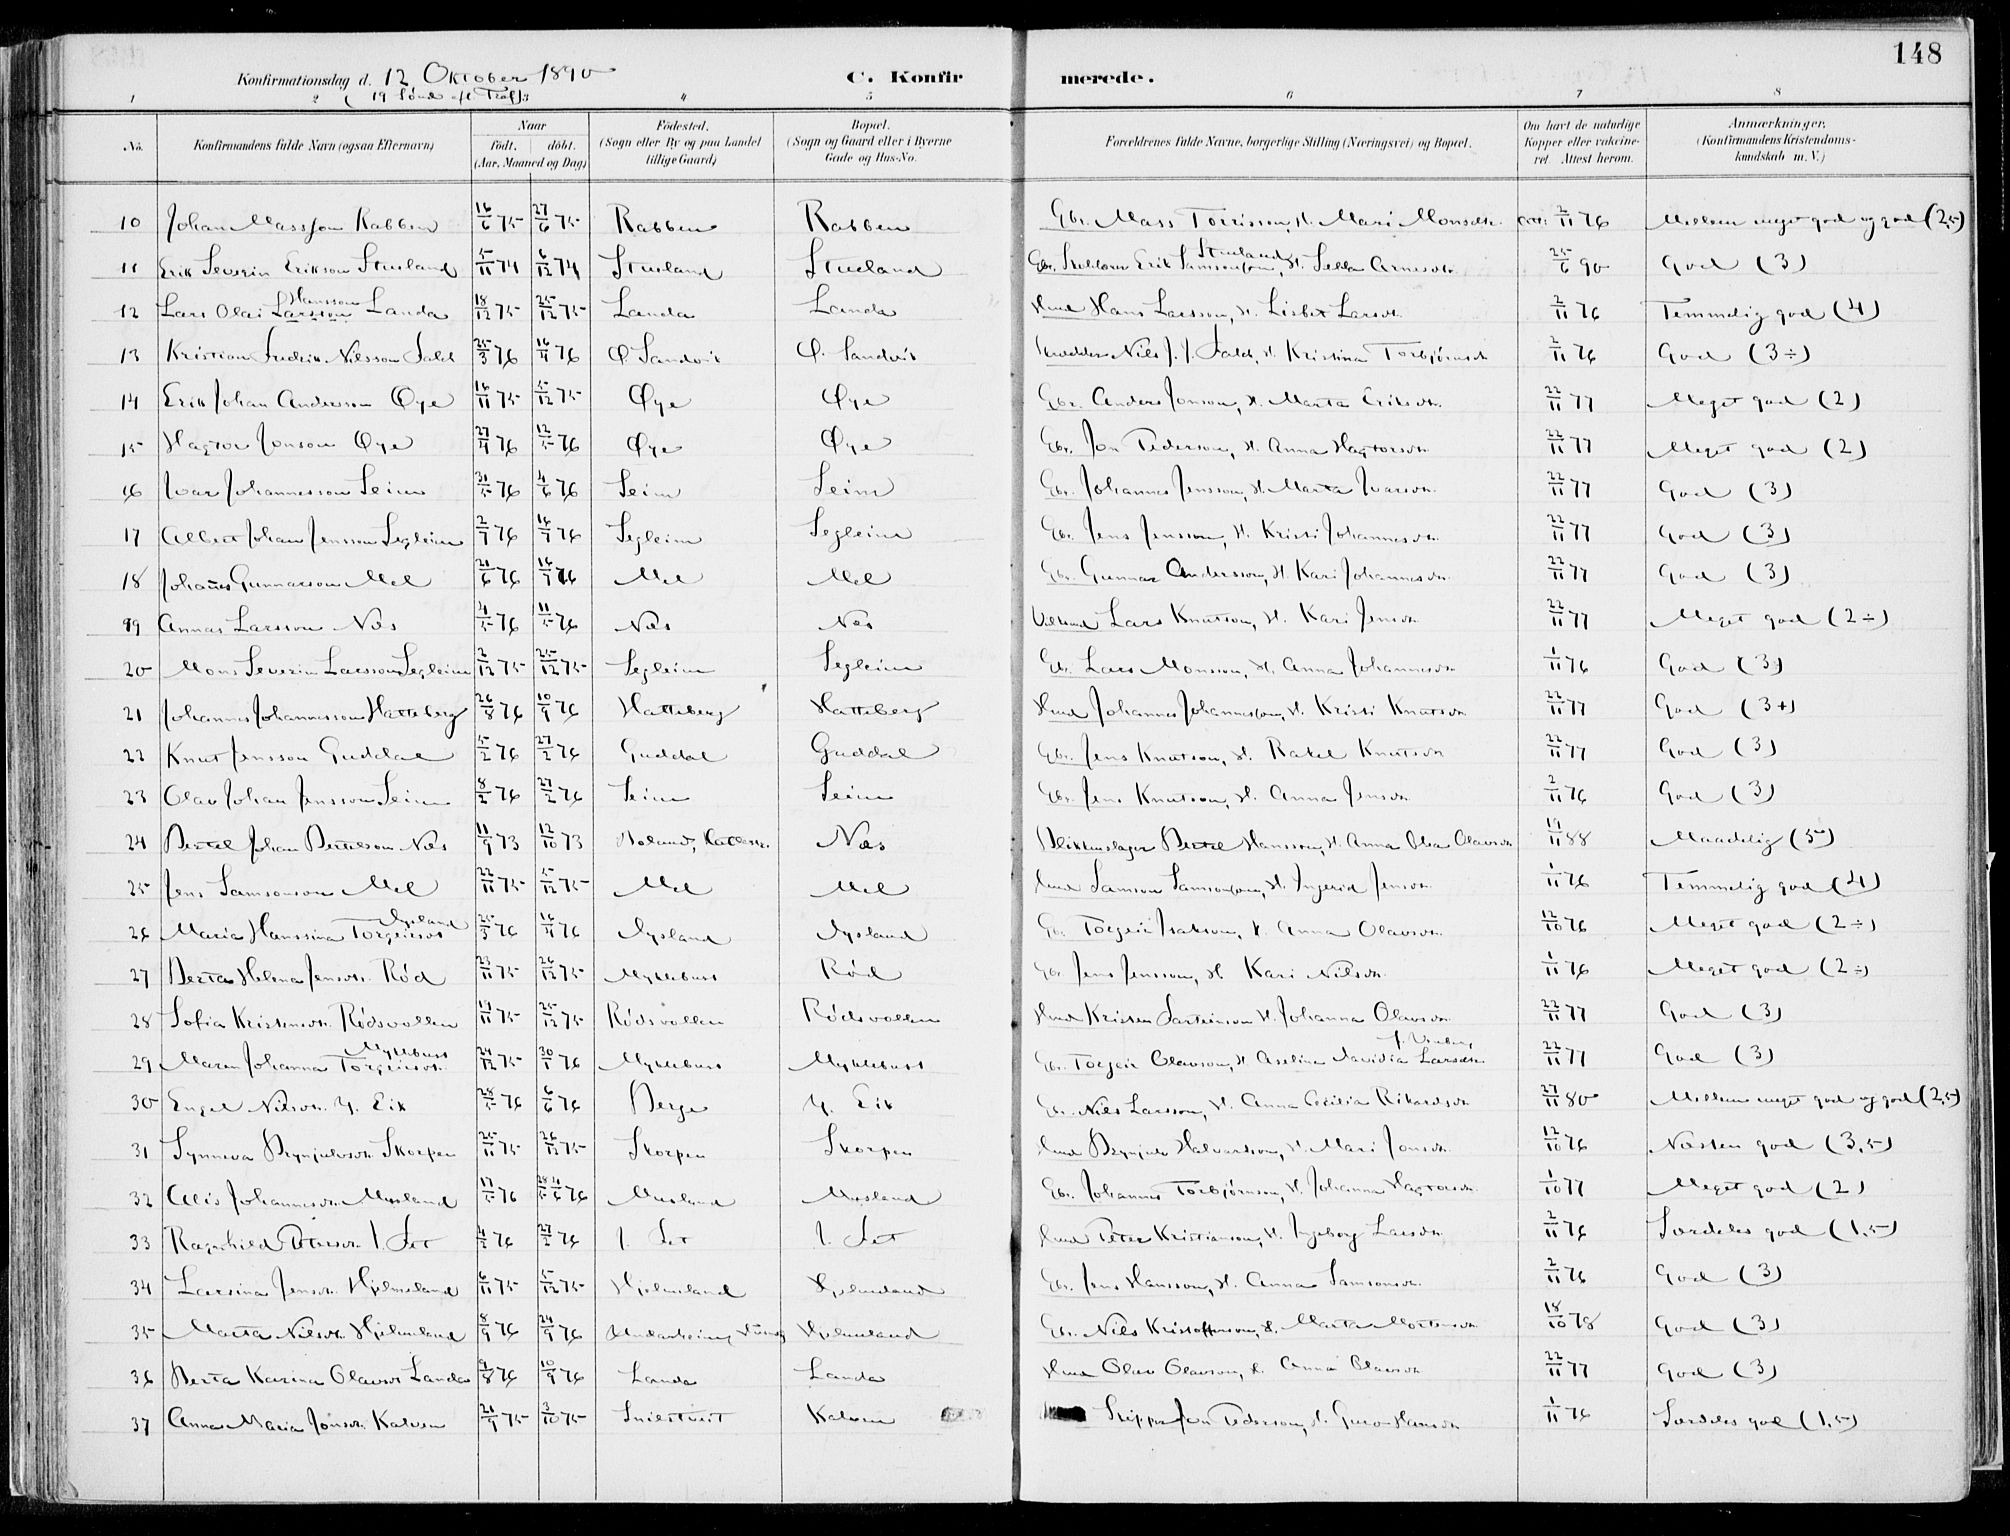 148
Konfirmationsdag d. 12 Oktober 1890 C. Konfir merede.
(19 Sønd. eft. Tref.)
1 2 3 4 5 6 7 8
No. Konfirmandens fulde Navn (ogsaa Efternavn) Naar født. døbt. (Aar, Maaned og Dag) Fødested. (Sogn eller By og paa Landet tillige Gaard) Bopæl. (Sogn og Gaard eller i Byerne Gade og Hus-No. Forældrenes fulde Navne, borgerlige Stilling (Næringsvei) og Bopæl. Om havt de naturlige Kopper eller vakcineret. Attest herom. Anmærkninger. (Konfirmandens Kristendomskundskab m. V.)
10 Johan Massson Rabben 16/6 75 27/6 75 Rabben Rabben Gbr. Mass Torrisson, H. Mari Monsdtr. 2/11 76 Mellem meget god og god (2,5)
11 Erik Severin Erikson Stusland 5/11 74 6/12 74 Stusland Stusland Erik Samsonson Stusland, H. Arnesdtr. 25/6 90 God (3)
12 Lars Olai Larsson Hansson Landa 18/12 75 25/12 75 Landa Landa Hmd Hans Larsson, H. Lisbet Larsdtr. 2/11 76 Temmelig god (4)
13 Kristian Fredrik Nilsson Sald 25/3 76 16/4 76 Ø. Sandvik Ø. Sandvik Nils J. J. Sald, H. Kristina Torbjørnsdtr 2/11 76 God (3÷)
14 Erik Johan Andersson Øye 16/11 75 5/12 75 Øye Øye Gbr. Anders Jonson, H. Marta Eriksdtr. 22/11 77 Meget god (2)
15 Hagtor Jonson Øye 27/4 76 12/5 76 Øye Øye Gbr. Jon Pederson, H. Anna Hagtorsdtr. 22/11 77 Meget god (2)
16 Ivar Johannesson Seim 30/5 76 4/6 76 Seim Seim Gbr. Johannes Jensson, H. Marta Ivarsdtr. 22/11 77 God (3)
17 Albert Johan Jensson Segleim 2/7 76 16/7 76 Segleim Segleim Gbr. Jens Jensson, H. Kristi Johannesdtr. 22/11 77 God (3)
18 Johannes Gunnarson Mel 20/6 76 16/7 76 Mel Mel Gbr. Gunnar Andersson, H. Kari Johannesdtr. 22/11 77 God (3)
19 Annas Larsson Nes 4/5 76 11/5 76 Nes Nes Lars Knutson, H. Kari Jensdtr. 22/11 77 Meget god (2÷)
20 Mons Severin Larsson Segleim 2/12 75 25/12 75 Segleim Segleim Gbr. Lars Monson, H. Anna Johannesdtr 1/11 76 God (3)
21 Johannes Johannesson Hatteberg 26/8 76 10/9 76 Hatteberg Hatteberg Hmd Johannes Johannesson, H. Kristi Knutsdtr. 22/11 77 God (3+)
22 Knut Jensson Guddal 5/2 76 27/2 76 Guddal Guddal Gbr. Jens Knutson, H. Rakel Knutsdtr 22/11 77 God (3)
23 Olav Johan Jensson Seim 8/2 76 27/2 76 Seim Seim Gbr. Jens Knutson, H. Anna Jensdtr. 2/11 76 God (3)
24 Bertel Johan Bertelson Nes 11/9 73 12/10 73 Nes Blikkenslager Bertel Hansson, H. Anna Olea Olavsdtr 14/11 88 Maadelig (5)
25 Jens Samsonson Mel 22/11 75 5/12 75 Mel Mel Hmd Samson Samsonson, H. Ingerid Jensdtr. 1/11 76 Temmelig god (4)
26 Maria Hanssina Torgeirsdt Nysland 25/3 76 16/4 76 Nysland Nysland Gbr Torgeir Isakson, H. Anna Olavsdtr. 12/10 76 Meget god (2÷)
27 Berta Helena Jensdtr. Rød 23/11 75 26/12 75 Myklebust Rød Gbr Jens Jensson, H. Kari Nilsdtr. 1/11 76 Meget god (2÷)
28 Sofia Kristensdtr. Rødsvollen 14/11 75 25/12 75 Rødsvollen Rødsvollen Hmd Kristen H. Johanna Olavsdtr. 22/11 77 God (3)
29 Maren Johanna Torgeirsdtr. Myklebust 24/12 75 30/1 76 Myklebust Myklebust Gbr. Torgeir Olavson, H. Aselina Davidia Larsdtr. 22/11 77 God (3)
30 Engel Nilsdtr. Y. Eik 28/5 76 6/6 76 Berge Y. Eik Gbr. Nils Larsson, H. Anna Cecilia Rikardsdtr 27/11 80 Mellem meget god og god (2,5)
31 Synneva Brynjulvsdtr. Skorpen 25/11 75 26/12 75 Skorpen Skorpen Hmd Brynjulv Halvardson, H. Mari Jonsdtr. 12/10 76 Næsten god (3,5)
32 Alis Johannesdtr. Musland 17/5 76 28/5 4/6 76 Musland Musland Gbr. Johannes Torbjørnson, H. Johanna Hagtorsdtr. 1/10 77 Meget god (2)
33 Ragnhild Petersdtr. I. Set 4/2 76 27/2 76 I. Set I. Set Hmd Peter Kristianson, H. Ingeborg Larsdtr. 2/11 76 Særdeles god (1,5)
34 Larsina Jensdtr. Hjelmeland 6/11 75 5/12 75 Hjelmeland Hjelmeland Gbr. Jens Hansson, H. Anna Samsonsdtr. 2/11 76 God (3)
35 Marta Nilsdtr. Hjelmeland 8/9 76 24/9 76 Hjelmeland Gbr. Nils Kristofferson, H. Marta Mortensdtr 18/10 78 God (3)
36 Berta Karina Olavsdt Landa 9/8 76 10/9 76 Landa Landa Hmd Olav Olavson, H. Anna Olavsdtr 22/11 77 God (3)
37 Anna Maria Jonsdtr. Kalven 21/9 75 3/10 75 Kalven Skipper Jon Pederson, H. Guro Hansdtr 1/11 76 Særdeles god (1,5)